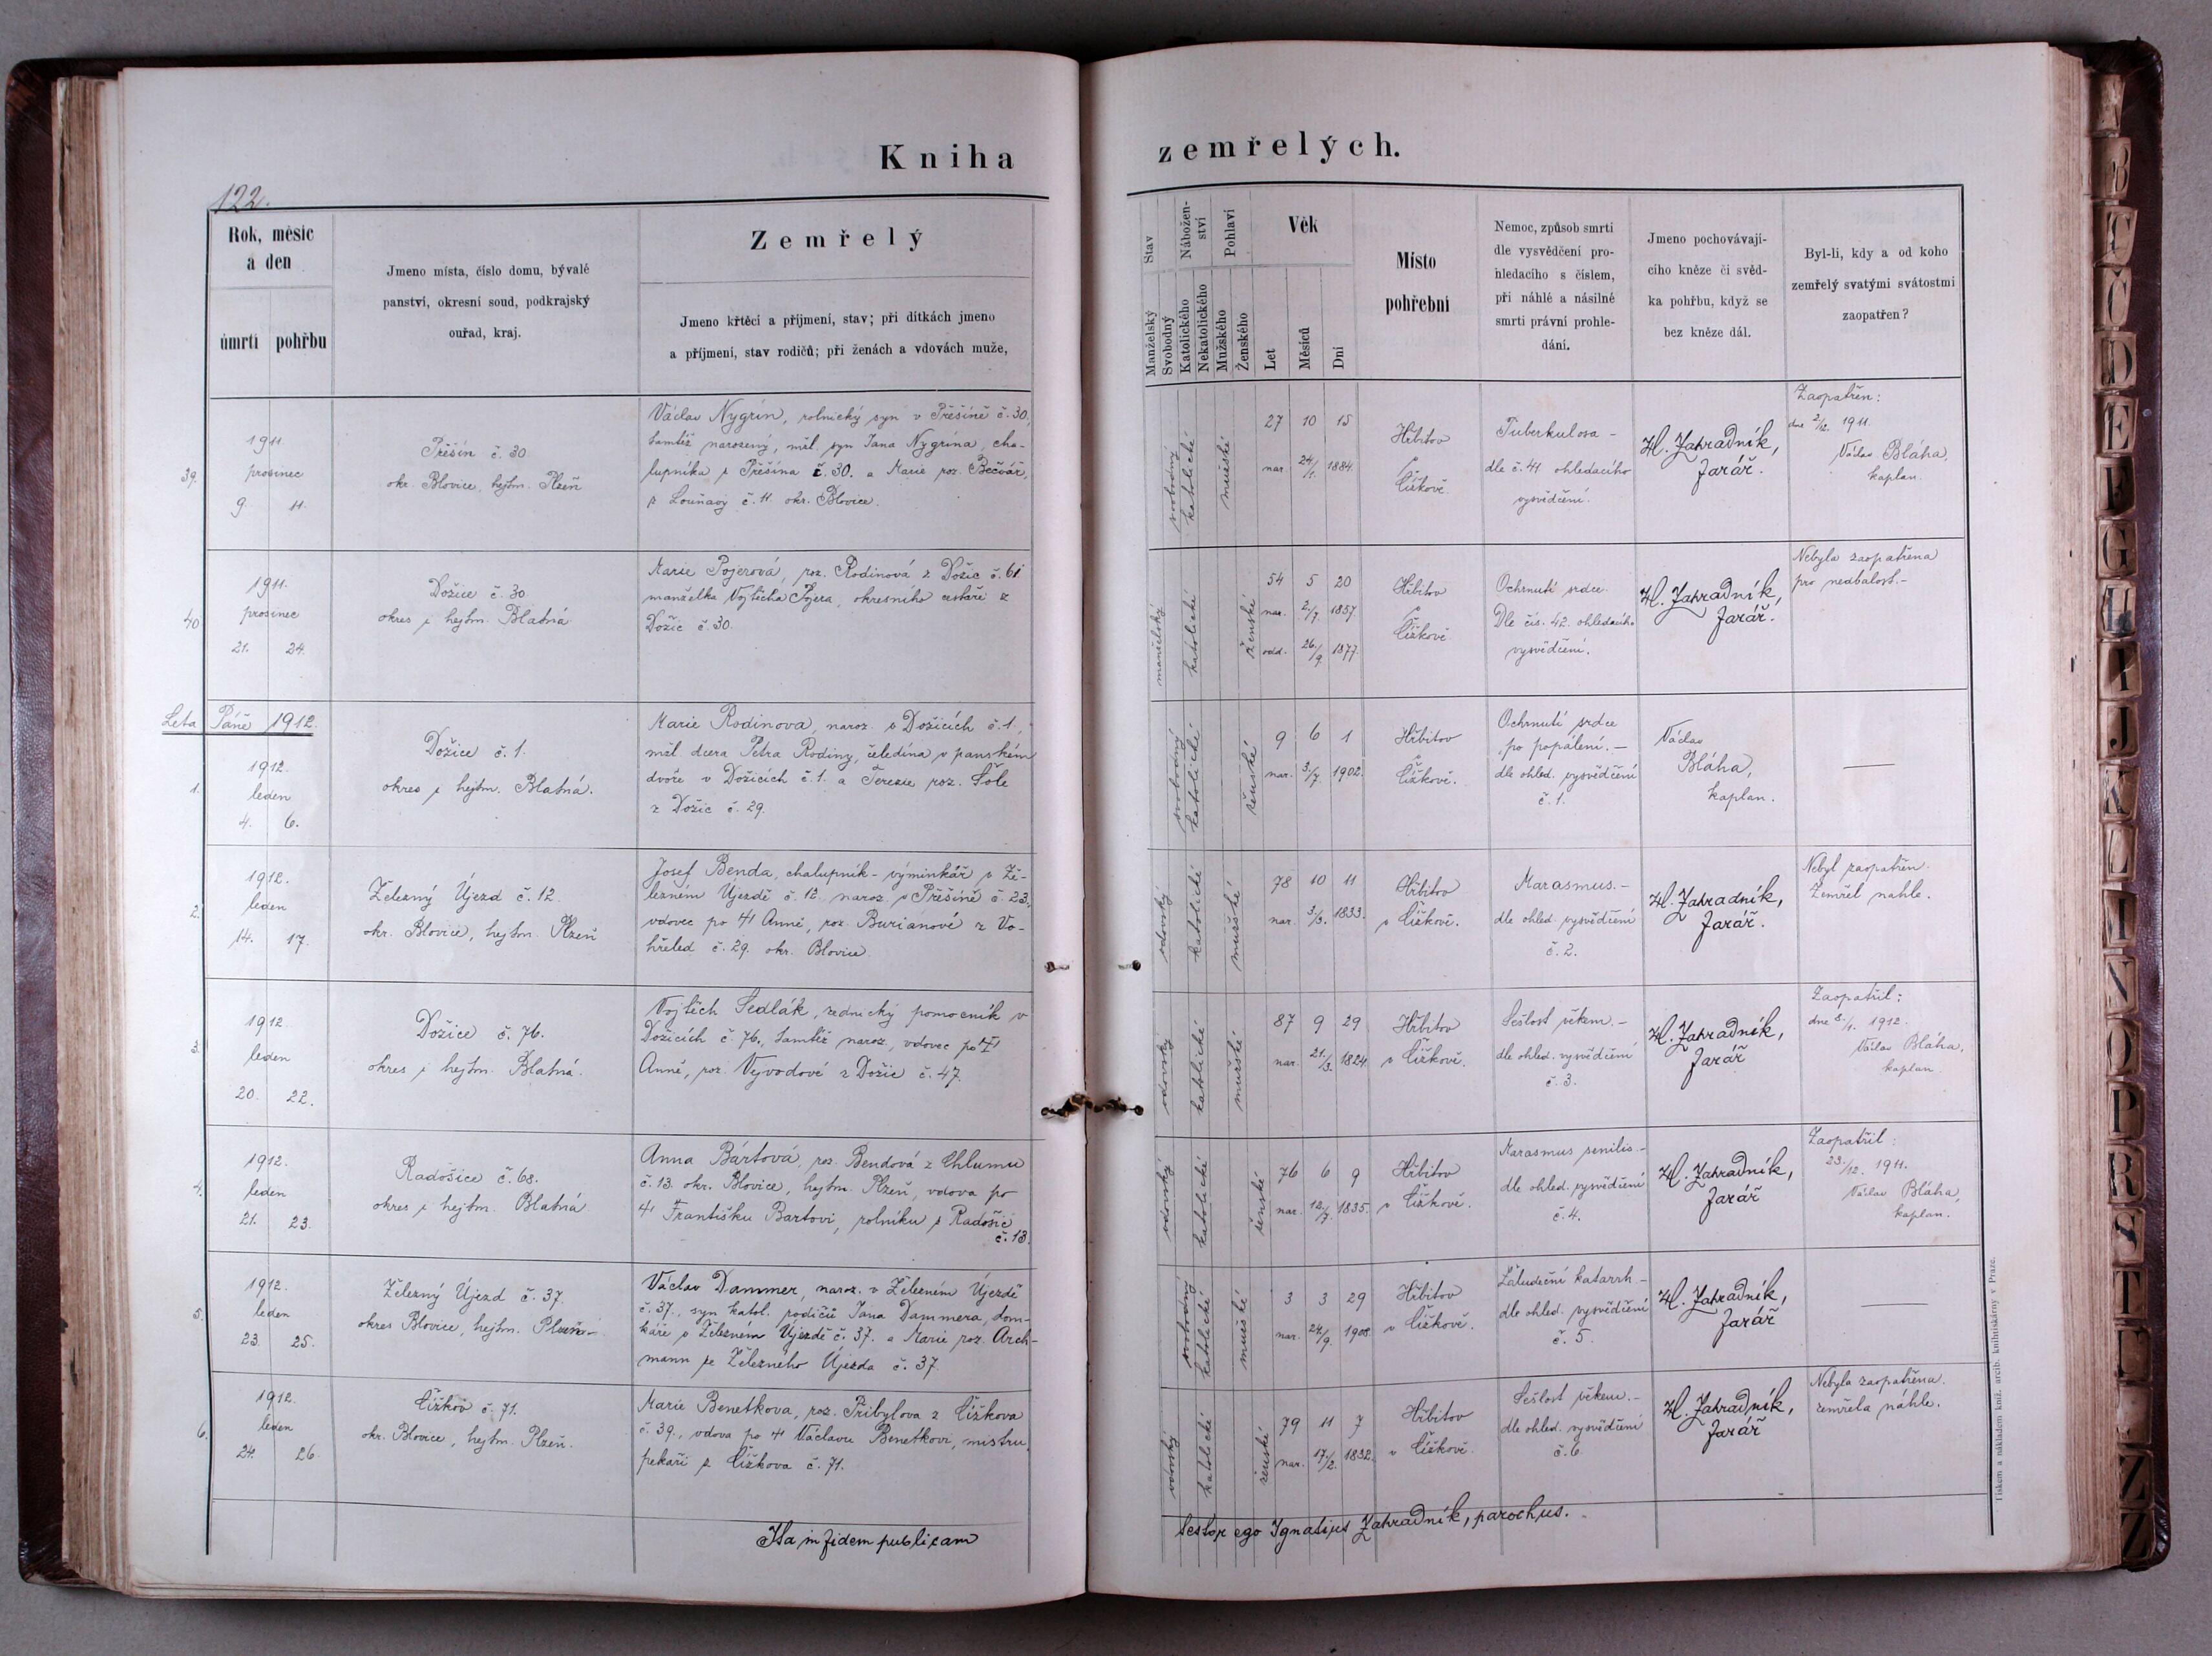 Kniha zemřelých.
122.
Rok, měsíc
a den
úmrtí pohřbu
Jmeno místa, číslo domu, bývalé
panství, okresní soud, podkrajský
ouřad, kraj.
Zemřelý
Jmeno křtěcí a příjmení, stav; při dítkách jmeno
a příjmení, stav rodičů; při ženách a vdovách muže,
Stav
Manželský
Svobodný
Nábožen-
ství
Katolického
Nekatolického
Pohlaví
Mužského
Ženského
Věk
Let
Měsíců
Dní
Místo
pohřební
Nemoc, způsob smrti
dle vysvědčení pro-
hledacího s číslem,
při náhlé a násilné
smrti právní prohle-
dání.
Jmeno pochovávají-
cího kněze či svěd-
ka pohřbu, když se
bez kněze dál.
Byl-li, kdy a od koho
zemřelý svatými svátostmi
zaopatřen?
39.
1911.
prosinec
9. 11.
Přešín č. 30.
okr. Blovice, hejtm. Plzeň
Václav Nygrín, rolnický syn v Přešíně č. 30,
tamtéž narozený, mšl. syn Jana Nygrína, cha-
lupníka z Přešína č. 30. a Marie roz. Bečvář,
z Louňavy č. 11. okr. Blovice.
svobodný
katolické
mužské
27 10 15
nar. 24/1. 1884.
Hřbitov
v
Čížkově.
Tuberkulosa -
dle č. 41 ohledacího
vysvědčení.
Zahradník,
farář.
Zaopatřen:
dne 2/12. 1911.
Václav Bláha,
kaplan.
40
1911.
prosinec
21. 24.
Dožice č. 30.
okres i hejtm. Blatná
Marie Pojerová, roz. Rodinová z Dožic č. 61
manželka Vojtěcha Pojera, okresního cestáře z
Dožic č. 30.
manželský
katolické
ženské
54 5 20
nar. 2/7. 1857.
odd. 26/9. 1877.
Hřbitov
v
Čížkově
Ochrnutí srdce.
Dle čís. 42. ohledacího
vysvědčení.
Zahradník,
farář.
Nebyla zaopatřena
pro nedbalost.-
Leta Páně 1912.
1.
1912.
leden
4. 6.
Dožice č. 1.
okres i hejtm. Blatná.
Marie Rodinova, naroz. v Dožicích č. 1.,
mšl. dcera Petra Rodiny, čeledína v panském
dvoře v Dožicích č. 1. a Terezie roz. Šole
z Dožic č. 29.
svobodný
katolické
ženské
9 6 1
nar. 3/7. 1902.
Hřbitov
v
Čížkově.
Ochrnutí srdce
po popálení. -
dle ohled. vysvědčení
č. 1.
Václav
Bláha,
kaplan.
2.
1912.
leden
14. 17.
Železný Újezd č. 12.
okr. Blovice, hejtm. Plzeň
Josef Benda, chalupník - výminkář v Že-
lezném Újezdě č. 12. naroz. v Přešíně č. 23,
vdovec po † Anně, roz. Burianové z Vo-
hřeled č. 29. okr. Blovice.
vdovský
katolické
mužské
78 10 11
nar. 3/3. 1833.
Hřbitov
v Čížkově.
Marasmus. -
dle ohled. vysvědčení
č. 2.
Zahradník,
farář.
Nebyl zaopatřen.
Zemřel náhle.
3.
1912.
leden
20. 22.
Dožice č. 76.
okres i hejtm. Blatná.
Vojtěch Sedlák, zednický pomocník v
Dožicích č. 76., tamtéž naroz., vdovec po †
Anně, roz. Vyvodové z Dožic č. 47.
vdovský
katolické
mužské
87 9 29
nar. 21/3. 1824.
Hřbitov
v Čížkově.
Sešlost věkem. -
dle ohled. vysvědčení
č. 3.
Zahradník,
farář
Zaopatřil:
dne 8/1. 1912.
Václav Bláha,
kaplan.
4.
1912.
leden
21. 23.
Radošice č. 68.
okres i hejtm. Blatná
Anna Bártová, roz. Bendová z Chlumu
č. 13. okr. Blovice, hejtm. Plzeň, vdova po
† Františku Bartovi, rolníku z Radošic
č. 13.
vdovský
katolické
ženské
76 6 9
nar. 12/7. 1835.
Hřbitov
v Čížkově.
Marasmus senilis. -
dle ohled. vysvědčení
č. 4.
Zahradník,
farář
Zaopatřil:
23./12. 1911.
Václav Bláha,
kaplan.
5.
1912.
leden
23. 25.
Železný Újezd č. 37.
okres Blovice, hejtm. Plzeň
Václav Dammer, naroz. v Železném Újezdě
č. 37., syn katol. rodičů Jana Dammera, dom-
káře v Železném Újezdě č. 37. a Marie roz. Arch-
mann ze Železného Újezda č. 37
svobodný
katolické
mužské
3 3 29
nar. 24/9. 1908.
Hřbitov
v Čížkově.
Žaludeční katarrh -
dle ohled. vysvědčení
č. 5.
Zahradník,
farář
6.
1912.
leden
24. 26.
Čížkov č. 71.
okr. Blovice, hejtm. Plzeň.
Marie Benetkova, roz. Přibylova z Čížkova
č. 39., vdova po † Václavu Benetkovi, mistru
pekaři z Čížkova č. 71.
vdovský
katolické
ženské
79 11 7
nar. 17/2. 1832.
Hřbitov
v Čížkově.
Sešlost věkem. -
dle ohled. vysvědčení
č. 6.
Zahradník,
farář
Nebyla zaopatřena.
zemřela náhle.
Ita in fidem publicam testor ego Ignatius Zahradník, parochus.
Tiskem a nákladem kníž. arcib. knihtiskárny v Praze.
B
C
Č
D
E
F
G
H
I
J
K
L
M
N
O
P
R
S
T
Z
Ž